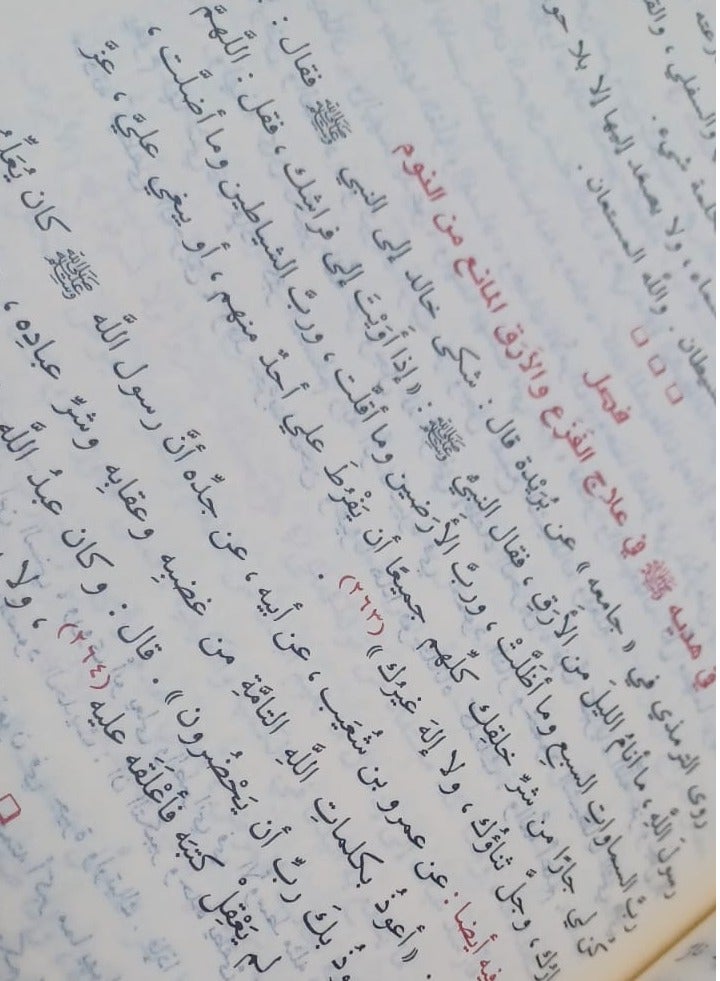 ـزعته
والسفلي ، والقـ
ولا يصعد إليها إلا بلا حو
ـيطان . والله المستعان .
فصل
في هديه ﷺ في علاج الفَزَع والأَرَق المانع من النوم
روى الترمذي في « جامعه » عن بُرَيْدة قال : شكى خالد إلى النبي ﷺ فقال :
رسولَ اللَّهِ ، ما أَنَامُ الليلَ مِن الأَرَقِ ، فقال النبيُّ ﷺ : « إِذا أَوَيْتَ إلى فراشِك ، فقل : اللَّهمَّ
ربَّ السماواتِ السبعِ وما أَظَلَّتْ ، وربَّ الأَرَضين وما أَقَلَّت ، وربَّ الشياطين وما أضلَّت ،
كُنْ لي جارًا من شرِّ خلقِك كلِّهم جميعًا أن يَفْرُطَ علي أحدٌ منهم ، أو يبغي عليَّ ، عَزَّ
جارُك ، وجلَّ ثناؤُك ، ولا إلهَ غيرُك » (٢٦٣) .
وفيه أيضا : عن عمرو بن شُعَيب ، عن أبيه ، عن جدِّه أنَّ رسول اللَّه ﷺ كان يُعَلِّـ
: « أعوذُ بكلماتِ اللَّهِ التامَّةِ من غضبِهِ وعقابِهِ وشرِّ عبادِه ،
ـوذُ بكَ ربِّ أن يَحْضُرون » . قال : وكان عبدُ اللَّه
لم يَعْقِلْ كتبَه فأَعْلَقَه عليه (٢٦٤) ، ولا